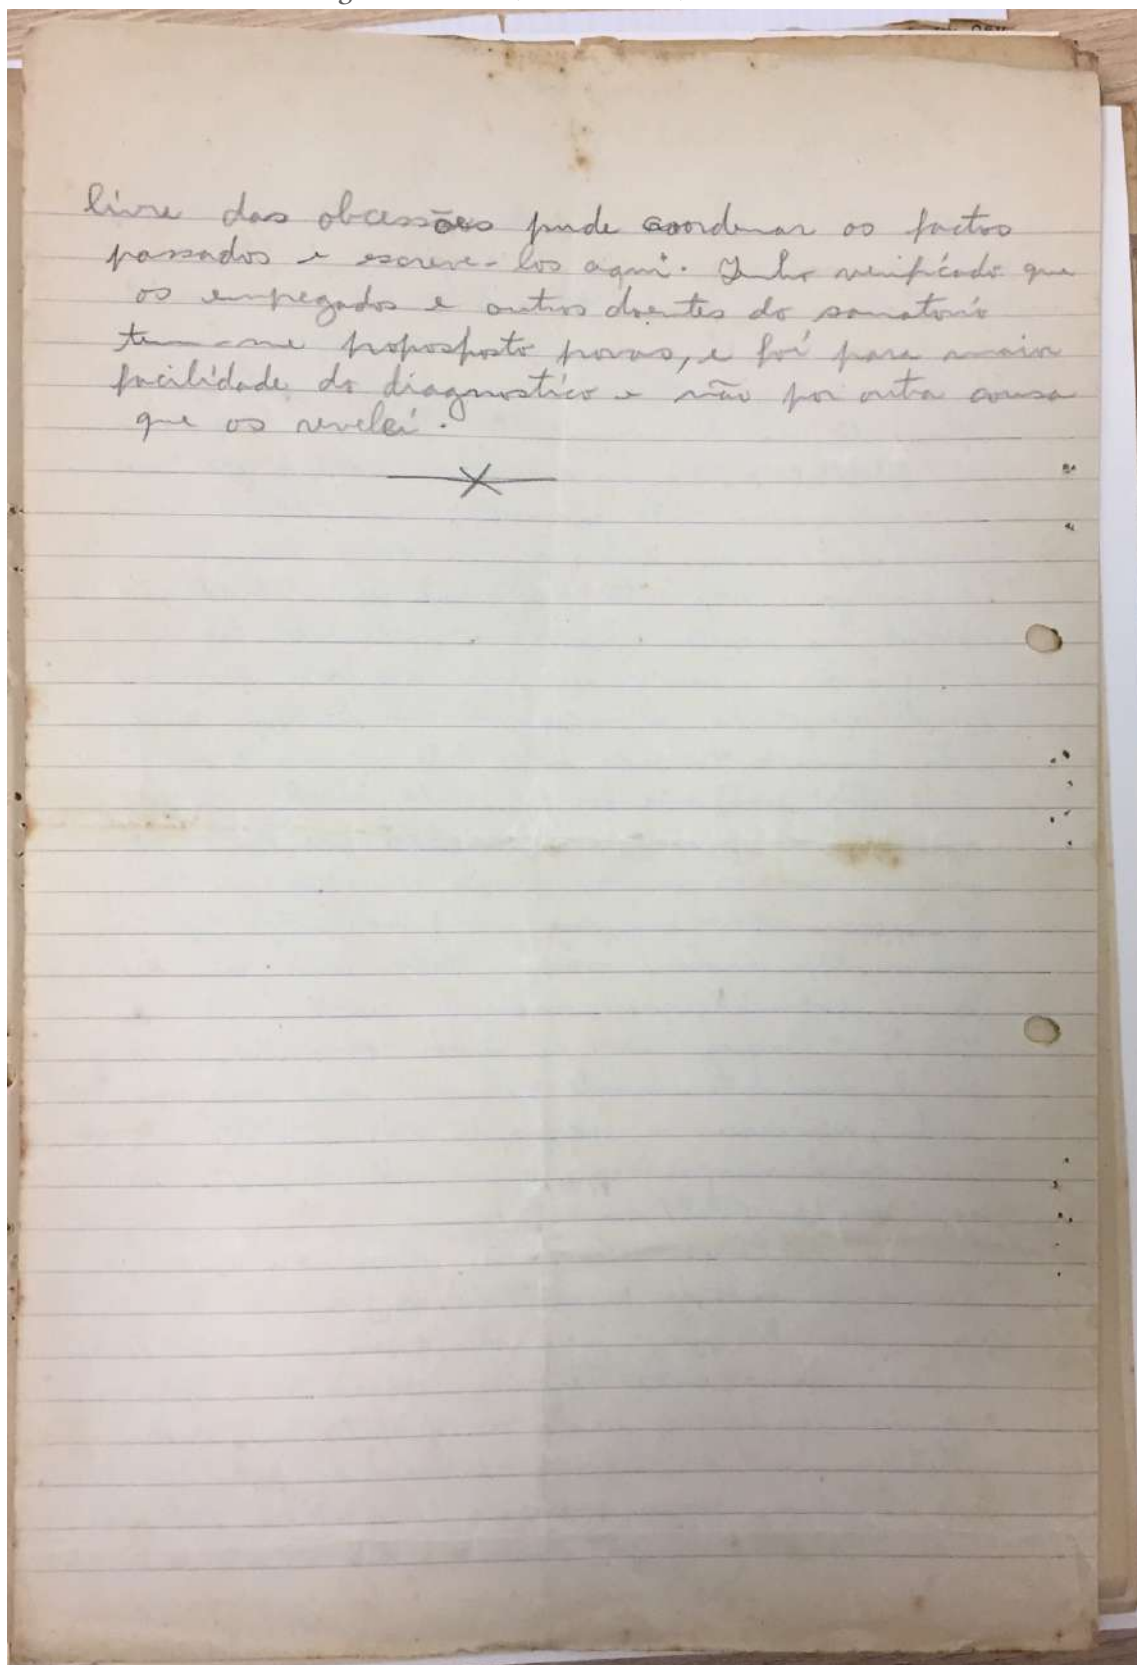 livre das obcessões pude coordenar os factos
passados e escreve-los aqui. Tenho verificado que
os empegados e outros doentes do sanatorio
tem-me proposposto provas, e foi para maior
facilidade do diagnostico e não por outra cousa
que os revelei.